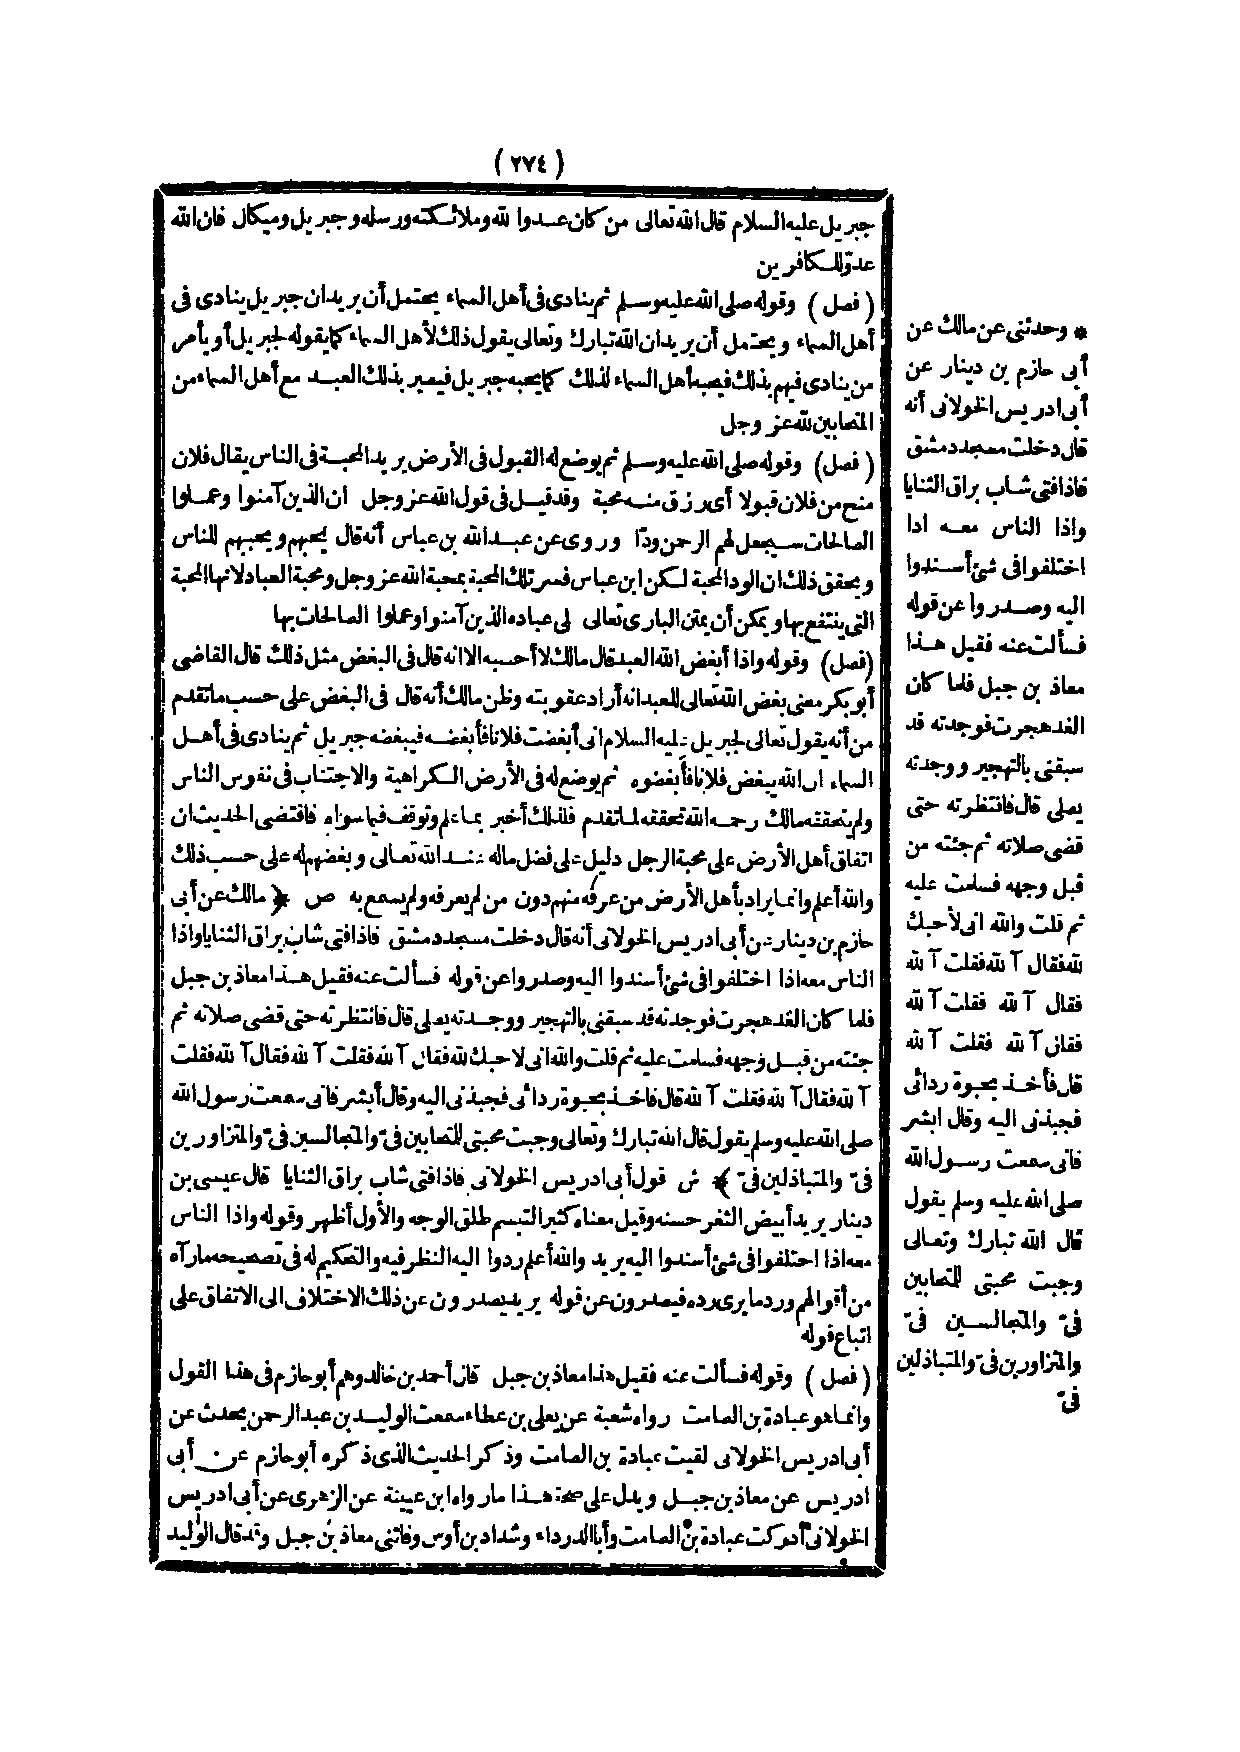 ( ٢٧٤ )
جبريل عليه السلام قال الله تعالى من كان عدوا لله وملائكته ورسله وجبريل وميكال فان الله
عدوّ للكافرين
( فصل ) وقوله صلى الله عليه وسلم ثم ينادى فى أهل السماء يحتمل أن يريد ان جبريل ينادى فى
أهل السماء ويحتمل أن يريد ان الله تبارك وتعالى يقول ذلك لأهل السماء كما يقوله لجبريل أو يأمر
من ينادى فيهم بذلك فيحبه أهل السماء لذلك كما يحبه جبريل فيصير بذلك العبد مع أهل السماء من
المتحابين لله عز وجل
( فصل ) وقوله صلى الله عليه وسلم ثم يوضع له القبول فى الأرض يريد المحبة فى الناس يقال فلان
منح من فلان قبولا أى رزق منه محبة وقد قيل فى قول الله عز وجل ان الذين آمنوا وعملوا
الصالحات سيجعل لهم الرحمن ودّا وروى عن عبد الله بن عباس أنه قال يحبهم ويحببهم للناس
ويحقق ذلك ان الود المحبة لكن ابن عباس فسر تلك المحبة بمحبة الله عز وجل ومحبة العباد لانها المحبة
التى ينتفع بها ويمكن أن يمتن البارى تعالى لى عباده الذين آمنوا وعملوا الصالحات بها
(فصل) وقوله واذا أبغض الله العبد قال مالك لا أحسبه الا انه قال فى البغض مثل ذلك قال القاضى
أبو بكر معنى بغض الله تعالى للعبد انه أراد عقوبته وظن مالك أنه قال فى البغض على حسب ما تقدم
من أنه يقول تعالى لجبريل عليه السلام انى أبغضت فلانا فأبغضه فيبغضه جبريل ثم ينادى فى أهل
السماء ان الله يبغض فلانا فأبغضوه ثم يوضع له فى الأرض الكراهية والاجتناب فى نفوس الناس
ولم يتحققه مالك رحمه الله تحققه لما تقدم فلذلك أخبر بما علم وتوقف فيما سواه فاقتضى الحديث ان
اتفاق أهل الأرض على محبة الرجل دليل على فضل ماله عند الله تعالى وبغضهم له على حسب ذلك
والله أعلم وانما يراد بأهل الأرض من عرفه منهم دون من لم يعرفه ولم يسمع به ص ﴿ مالك عن أبى
حازم بن دينار عن أبى ادريس الخولانى أنه قال دخلت مسجد دمشق فاذا فتى شاب براق الثنايا واذا
الناس معه اذا اختلفوا فى شئ أسندوا اليه وصدروا عن قوله فسألت عنه فقيل هذا معاذ بن جبل
فلما كان الغد هجرت فوجدته قد سبقنى بالتهجير ووجدته يصلى قال فانتظرته حتى قضى صلاته ثم
جئته من قبل وجهه فسلمت عليه ثم قلت والله انى لاحبك لله فقال آ لله فقلت آ لله فقال آ لله فقلت
آ لله فقال آ لله فقلت آ لله قال فاخذ بحبوة ردائى فجبذنى اليه وقال أبشر فانى سمعت رسول الله
صلى الله عليه وسلم يقول قال الله تبارك وتعالى وجبت محبتى للمتحابين فىّ والمتجالسين فىّ والمتزاورين
فىّ والمتباذلين فىّ ﴾ ش قول أبى ادريس الخولانى فاذا فتى شاب براق الثنايا قال عيسى بن
دينار يريد أبيض الثغر حسنه وقيل معناه كثير التبسم طلق الوجه والأول أظهر وقوله واذا الناس
معه اذا اختلفوا فى شئ أسندوا اليه يريد والله أعلم ردوا اليه النظر فيه والتحكيم له فى تصحيحه ما رآه
من أقوالهم ورد ما يرى رده فيصدرون عن قوله يريد يصدرون عن ذلك الاختلاف الى الاتفاق على
اتباع قوله
( فصل ) وقوله فسألت عنه فقيل هذا معاذ بن جبل قال أحمد بن خالد وهم أبو حازم فى هذا القول
وانما هو عبادة بن الصامت رواه شعبة عن يعلى بن عطاء سمعت الوليد بن عبد الرحمن يحدث عن
أبى ادريس الخولانى لقيت عبادة بن الصامت وذكر الحديث الذى ذكره أبو حازم عن أبى
ادريس عن معاذ بن جبل ويدل على صحة هذا ما رواه ابن عيينة عن الزهرى عن أبى ادريس
الخولانى أدركت عبادة بن الصامت وأبا الدرداء وشداد بن أوس وفاتنى معاذ بن جبل وقد قال الوليد
* وحدثنى عن مالك عن
أبى حازم بن دينار عن
أبى ادريس الخولانى أنه
قال دخلت مسجد دمشق
فاذا فتى شاب براق الثنايا
واذا الناس معه اذا
اختلفوا فى شئ أسندوا
اليه وصدروا عن قوله
فسألت عنه فقيل هذا
معاذ بن جبل فلما كان
الغد هجرت فوجدته قد
سبقنى بالتهجير ووجدته
يصلى قال فانتظرته حتى
قضى صلاته ثم جئته من
قبل وجهه فسلمت عليه
ثم قلت والله انى لأحبك
لله فقال آ لله فقلت آ لله
فقال آ لله فقلت آ لله
فقال آ لله فقلت آ لله
قال فأخذ بحبوة ردائى
فجبذنى اليه وقال ابشر
فانى سمعت رسول الله
صلى الله عليه وسلم يقول
قال الله تبارك وتعالى
وجبت محبتى للمتحابين
فىّ والمتجالسين فىّ
والمتزاورين فىّ والمتباذلين
فىّ